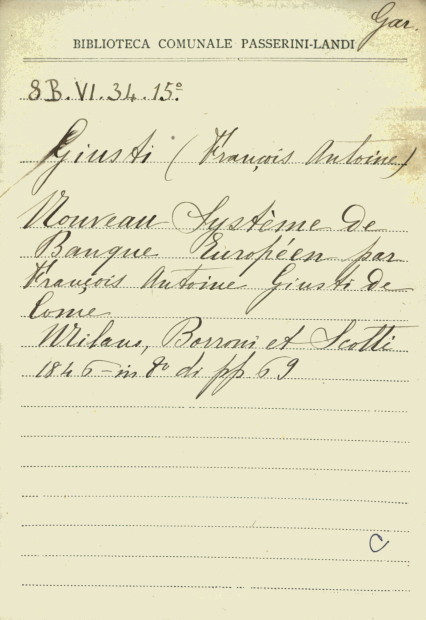 Gar.
BIBLIOTECA COMUNALE PASSERINI-LANDI
8B.VI.34.15º
Giusti (François Antoine)
Nouveau Système de
Banque Européen par
François Antoine Giusti de
Come
Milano, Borroni et Scotti
1846 – in 8º di pp 69
C